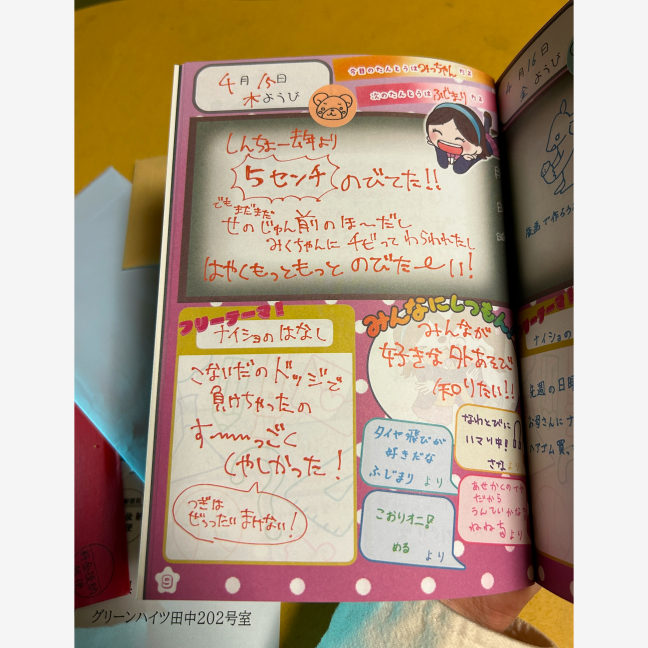 4月15日
木ようび
今日のたんとうはみっちゃんだよ
次のたんとうはふじまりだよ
しんちょー去年より
5センチのびてた!!
でもまだまだ
せのじゅん前のほ〜だし
みくちゃんにチビってわらわれたし
はやくもっともっとのびた〜い!
フリーテーマ!
ナイショのはなし
こないだのドッジで
負けちゃったの
す〜〜っごく
くやしかった!
つぎは
ぜっったいまけない!
みんなにしつもん
みんなが
好きな外あそび
知りたい!!
タイヤ飛びが
好きだな
ふじまりより
なわとびに
ハマり中!
こおりオニ!
めるより
あせかくのイヤ
だから
うんていかな
ねねるより
9
4月16日
金ようび
フリーテーマ!
ナイショの
先週の日曜
お母さんにナ
ヘアゴム買
グリーンハイツ田中202号室